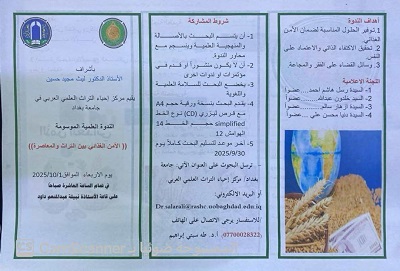 بأشراف
الأستاذ الدكتور ليث مجيد حسين
يقيم مركز إحياء التراث العلمي العربي في
جامعة بغداد
الندوة العلمية الموسومة
(( الأمن الغذائي بين التراث والمعاصرة))
يوم الاربعاء الموافق2025/10/1
في تمام الساعة العاشرة صباحا
على قاعة الأستاذة نبيلة عبدالمنعم داود
شروط المشاركة
1- أن يتسم البحث بالأصالة
والمنهجية العلمية وينسجم مع
محاور الندوة.
2- أن لا يكون منشوراً أو قدم في
مؤتمرات او ندوات اخرى
3- يخضع البحث للسلامة العلمية
واللغوية
4- يقدم البحث بنسخة ورقية حجم A4
مع قرص ليزري (CD) نوع الخط
simplified حجم الخط 14
الهوامش 12
5- آخر موعد لتسليم البحث كاملاً يوم
2025/9/30
- ترسل البحوث على العنوان الآتي: جامعة
بغداد/ مركز إحياء التراث العلمي العربي
أو البريد الإلكتروني:
Dr salarali@rashc.uobaghdad.edu.iq
للاستفسار يرجى الاتصال على الهاتف
(07700028322) أ.د. طه سبتي إبراهيم
أهداف الندوة
1.توفير الحلول المناسبة لضمان الأمن
الغذائي
2. تحقيق الاكتفاء الذاتي والاعتماد على
النفس
3. وسائل القضاء على الفقر والمجاعة
اللجنة الاعلامية
1- السيدة رسل هاشم احمد....عضواً
2- السيد خلدون عبدالله......عضواً
3- السيدة ازهار سالم......عضواً
4- السيدة دنيا محسن علي ...عضواً